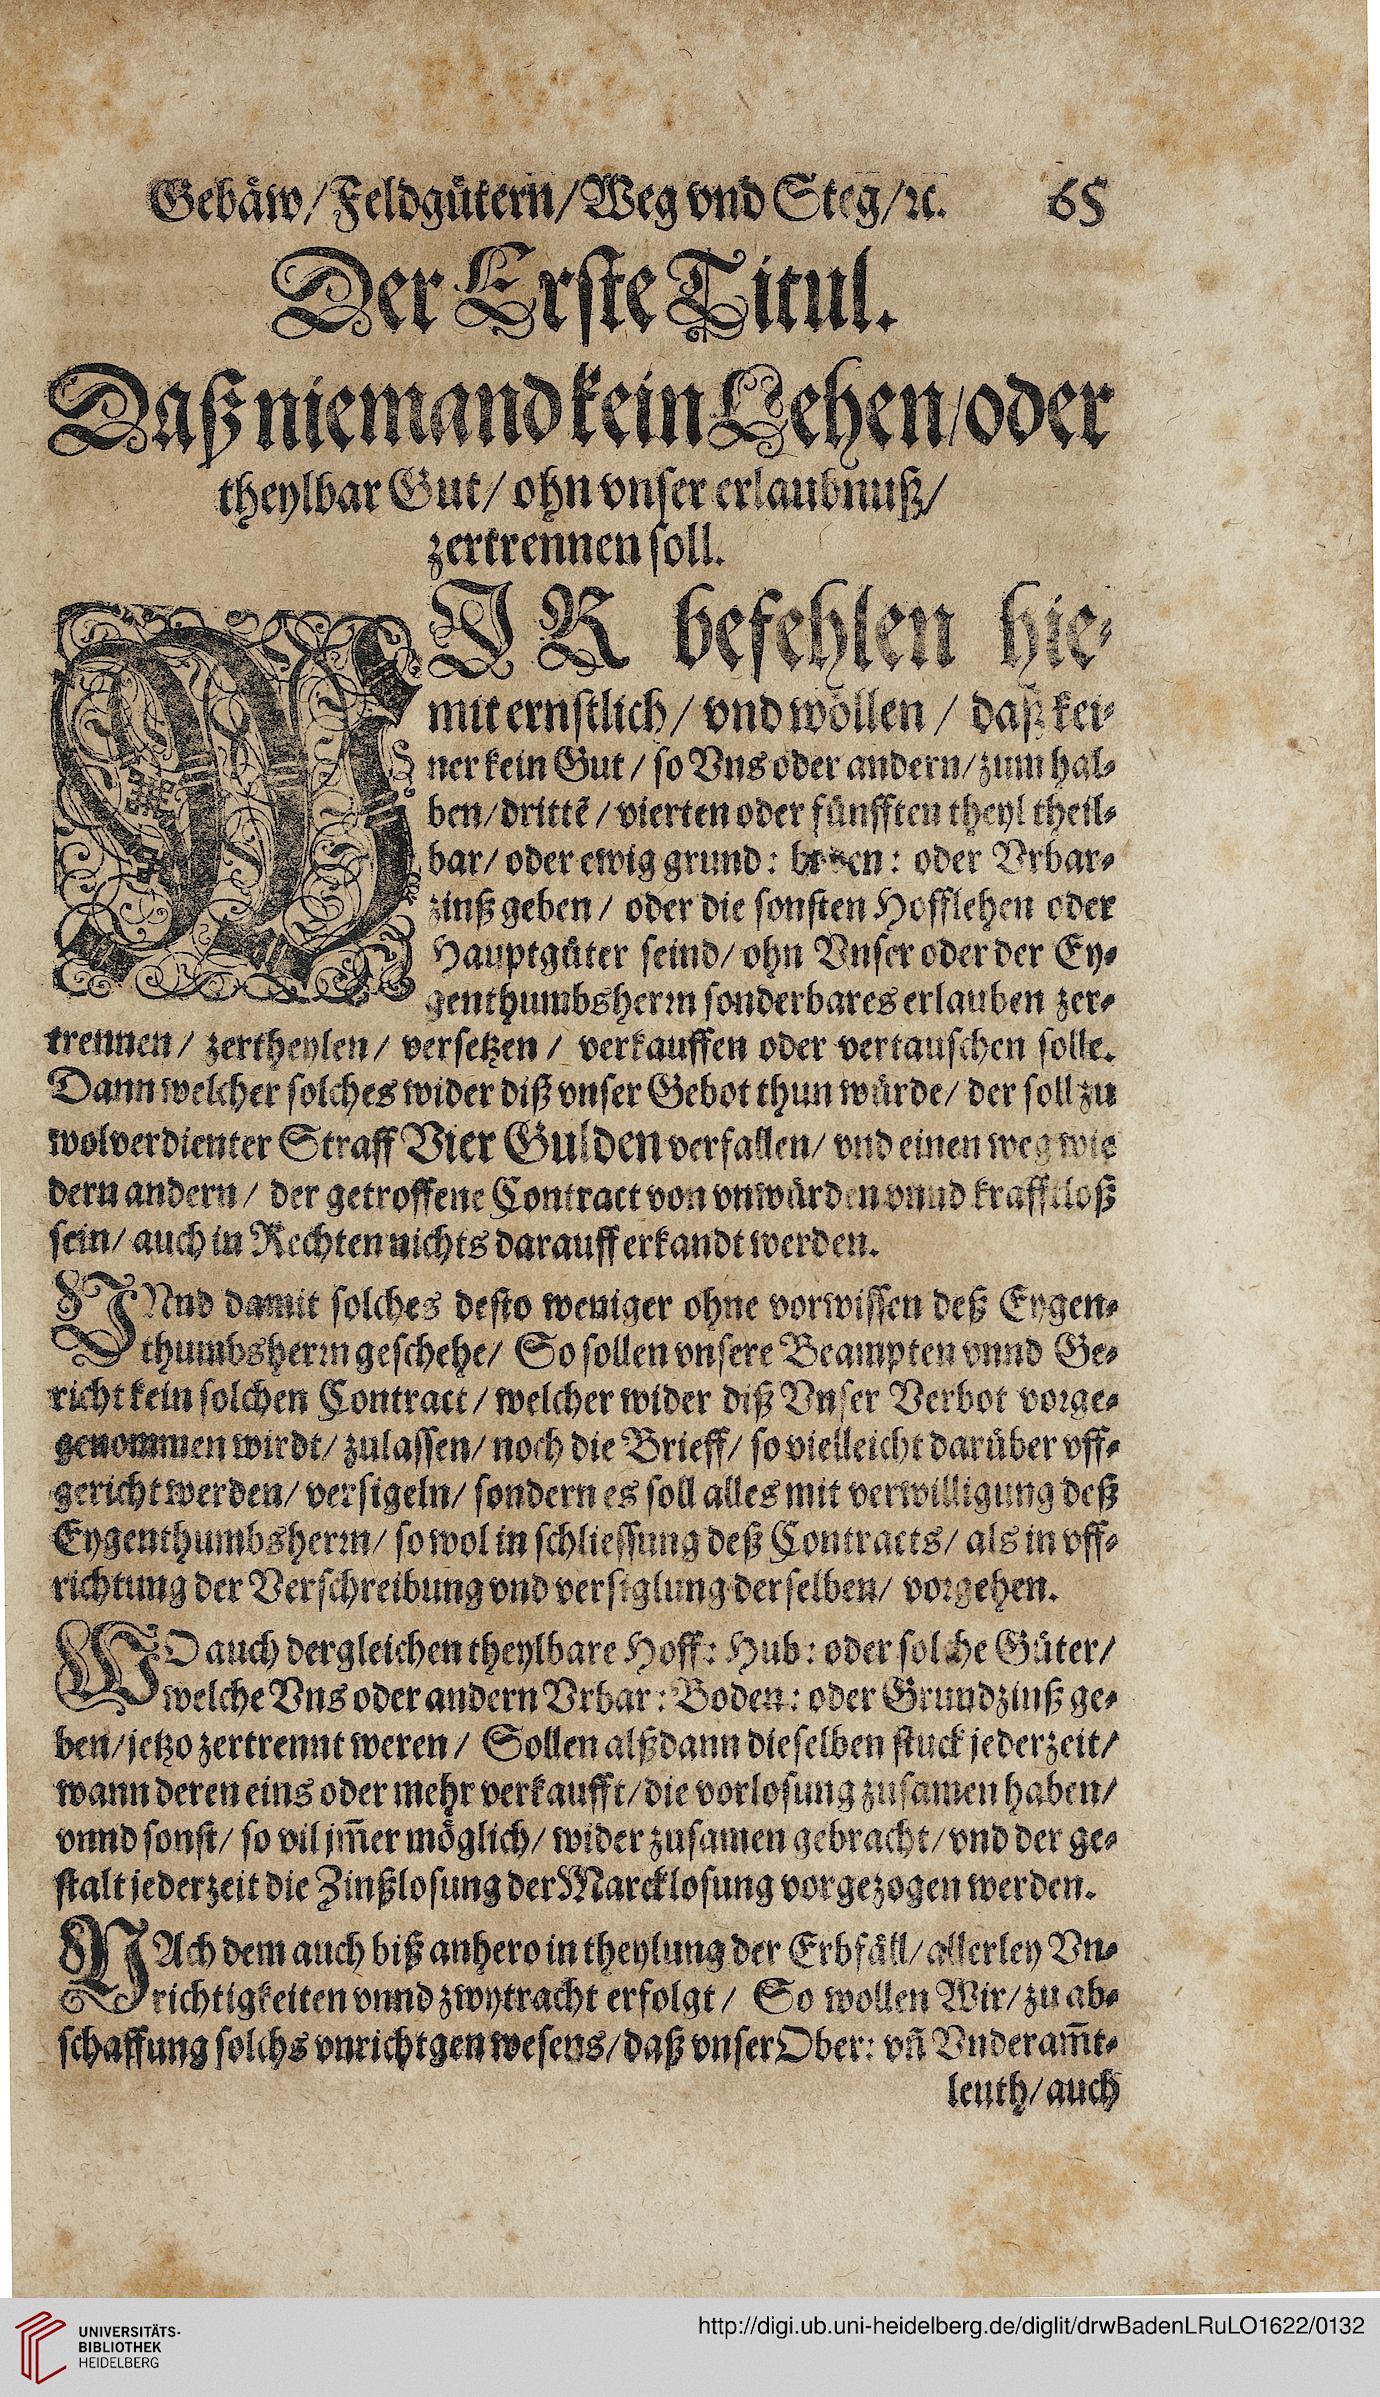 Gebäw/Feldgütern/Weg vnd Steg/ꝛc. 65
Der Erste Titul.
Daß niemand kein Lehen/oder
theylbar Gut/ ohn vnser erlaubnuß/
zertrennen soll.
WJR befehlen hie-
mit ernstlich/ vnd wöllen / daß kei-
ner kein Gut / so Vns oder andern/zum hal-
ben/drittē / vierten oder fünfften theyl theil-
bar/ oder ewig grund: boden: oder Vrbar-
zinß geben / oder die sonsten Hofflehen oder
Hauptgüter seind/ ohn Vnser oder der Ey-
genthumbsherꝛn sonderbares erlauben zer-
trennen / zertheylen / versetzen / verkauffen oder vertauschen solle.
Dann welcher solches wider diß vnser Gebot thun würde/ der soll zu
wolverdienter Straff Vier Gulden verfallen/ vnd einen weg wie
dern andern / der getroffene Contract von vnwürden vnnd krafftloß
sein/ auch in Rechten nichts darauff erkandt werden.
VNnd damit solches desto weniger ohne vorwissen deß Eygen-
thumbsherꝛn geschehe/ So sollen vnsere Beampten vnnd Ge-
richt kein solchen Contract / welcher wider diß Vnser Verbot voꝛge-
genommen wirdt/ zulassen/ noch die Brieff/ so vielleicht darüber vff-
gericht werden/ versigeln/ sondern es soll alles mit verwilligung deß
Eygenthumbsherꝛn/ so wol in schliessung deß Contracts/ als in vff-
richtung der Verschreibung vnd versiglung derselben/ voꝛgehen.
WO auch dergleichen theylbare Hoff: Hub: oder solche Güter/
welche Vns oder andern Vrbar: Boden: oder Grundzinß ge-
ben/jetzo zertrennt weren / Sollen alßdann dieselben stuck jederzeit/
wann deren eins oder mehr verkaufft/die vorlosung zusamen haben/
vnnd sonst/ so vil jm̄er möglich/ wider zusamen gebracht/vnd der ge-
stalt jederzeit die Zinßlosung der Marcklosung vorgezogen werden.
NAch dem auch biß anhero in theylung der Erbfäll/ allerley Vn-
richtigkeiten vnnd zwytracht erfolgt / So wollen Wir/zu ab-
schaffung solchs vnrichtgen wesens/daß vnser Ober: vn̄ Vnderam̄t-
leuth/auch
UNIVERSITÄTS-
BIBLIOTHEK
HEIDELBERG
http://digi.ub.uni-heidelberg.de/diglit/drwBadenLRuLO1622/0132